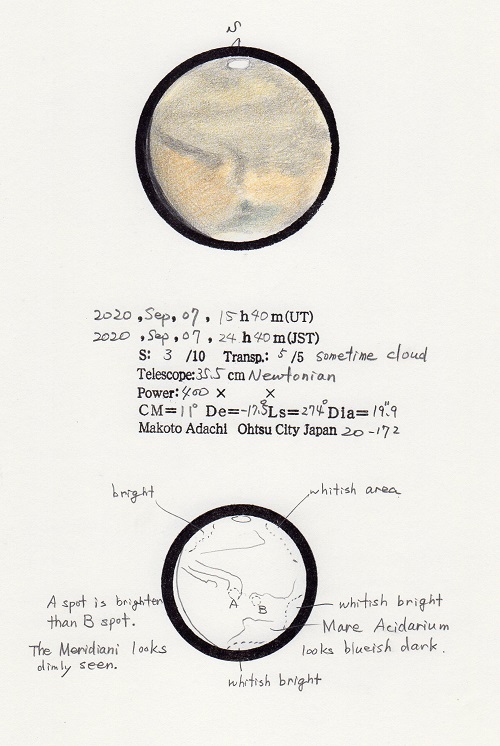 S
2020 , Sep, 07 , 15 h 40 m (UT)
2020 , Sep, 07 , 24 h 40 m (JST)
S: 3 /10 Transp.: 5 /5 sometime cloud
Telescope: 35.5 cm Newtonian
Power: 400 × ×
CM= 11° De= -17.8° Ls= 274° Dia= 19".9
Makoto Adachi Ohtsu City Japan 20-172
bright
whitish area
A B
A spot is brighten
than B spot.
whitish bright
Mare Acidarium
looks blueish dark.
The Meridiani looks
dimly seen.
whitish bright